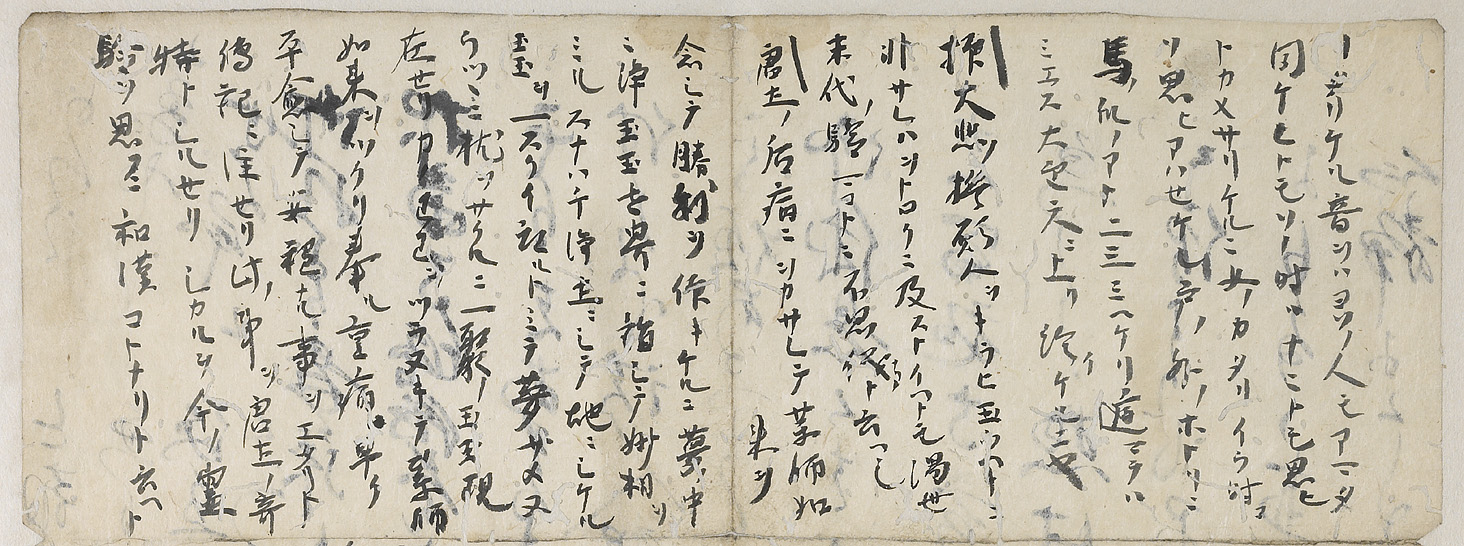 ケル音ヲハヨソノ人モアマタ
聞ケレトモソノ時ハナニトモ思ヒ
トカメサリケルニ女ノカタリイフ時ニ
ソ思ヒアハセケル戸ノ外ノホトリニ
馬ノ爪ノアト二三ミヘケリ遠マテハ
ミエス大方天ニ上リ給ケルニヤ
大悲ノ撥願人ヲキラヒ玉ハ
非サレハヲトロクニ及ストイヘトモ濁世
末代ノ霊一コトニ不思儀ト云ヘシ
唐土ノ后病ニヲカサレテ薬師如来ヲ
念シテ勝利ヲ作キケルニ夢ノ中
ニ浄玉玉世界ニ詣シテ妙相ヲ
ミルスナハチ浄土ニシテ地ニシケル
玉玉ヲ一スクイ取ルトミテ夢サメヌ
ウツヽニ枕ヲサクルニ一聚ノ玉玉現
在セリカノ玉玉ヲツラヌキテ薬師
如来ヲツクリ奉ル重病早ク
平愈シテ安穏ナル事ヲエタリト
傳記ニ注セリ此ノ事ヲ唐土ノ奇
特トシルセリシカルヲ今ノ霊
験ヲ思フニ和漢コトナリト云ヘト